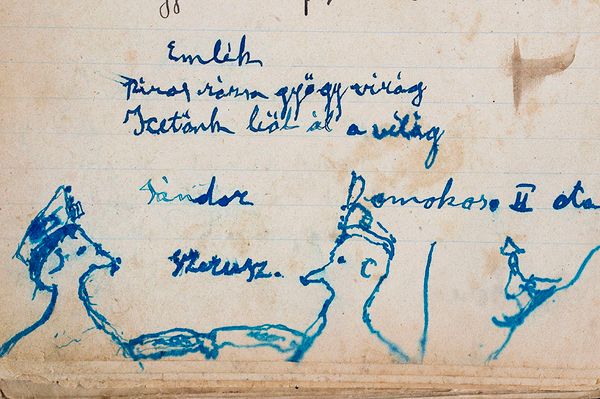 Emlék
Piros rózsa gyögy virág
Ketönk ből ál a világ
Sándor Domokos. II
szerusz.